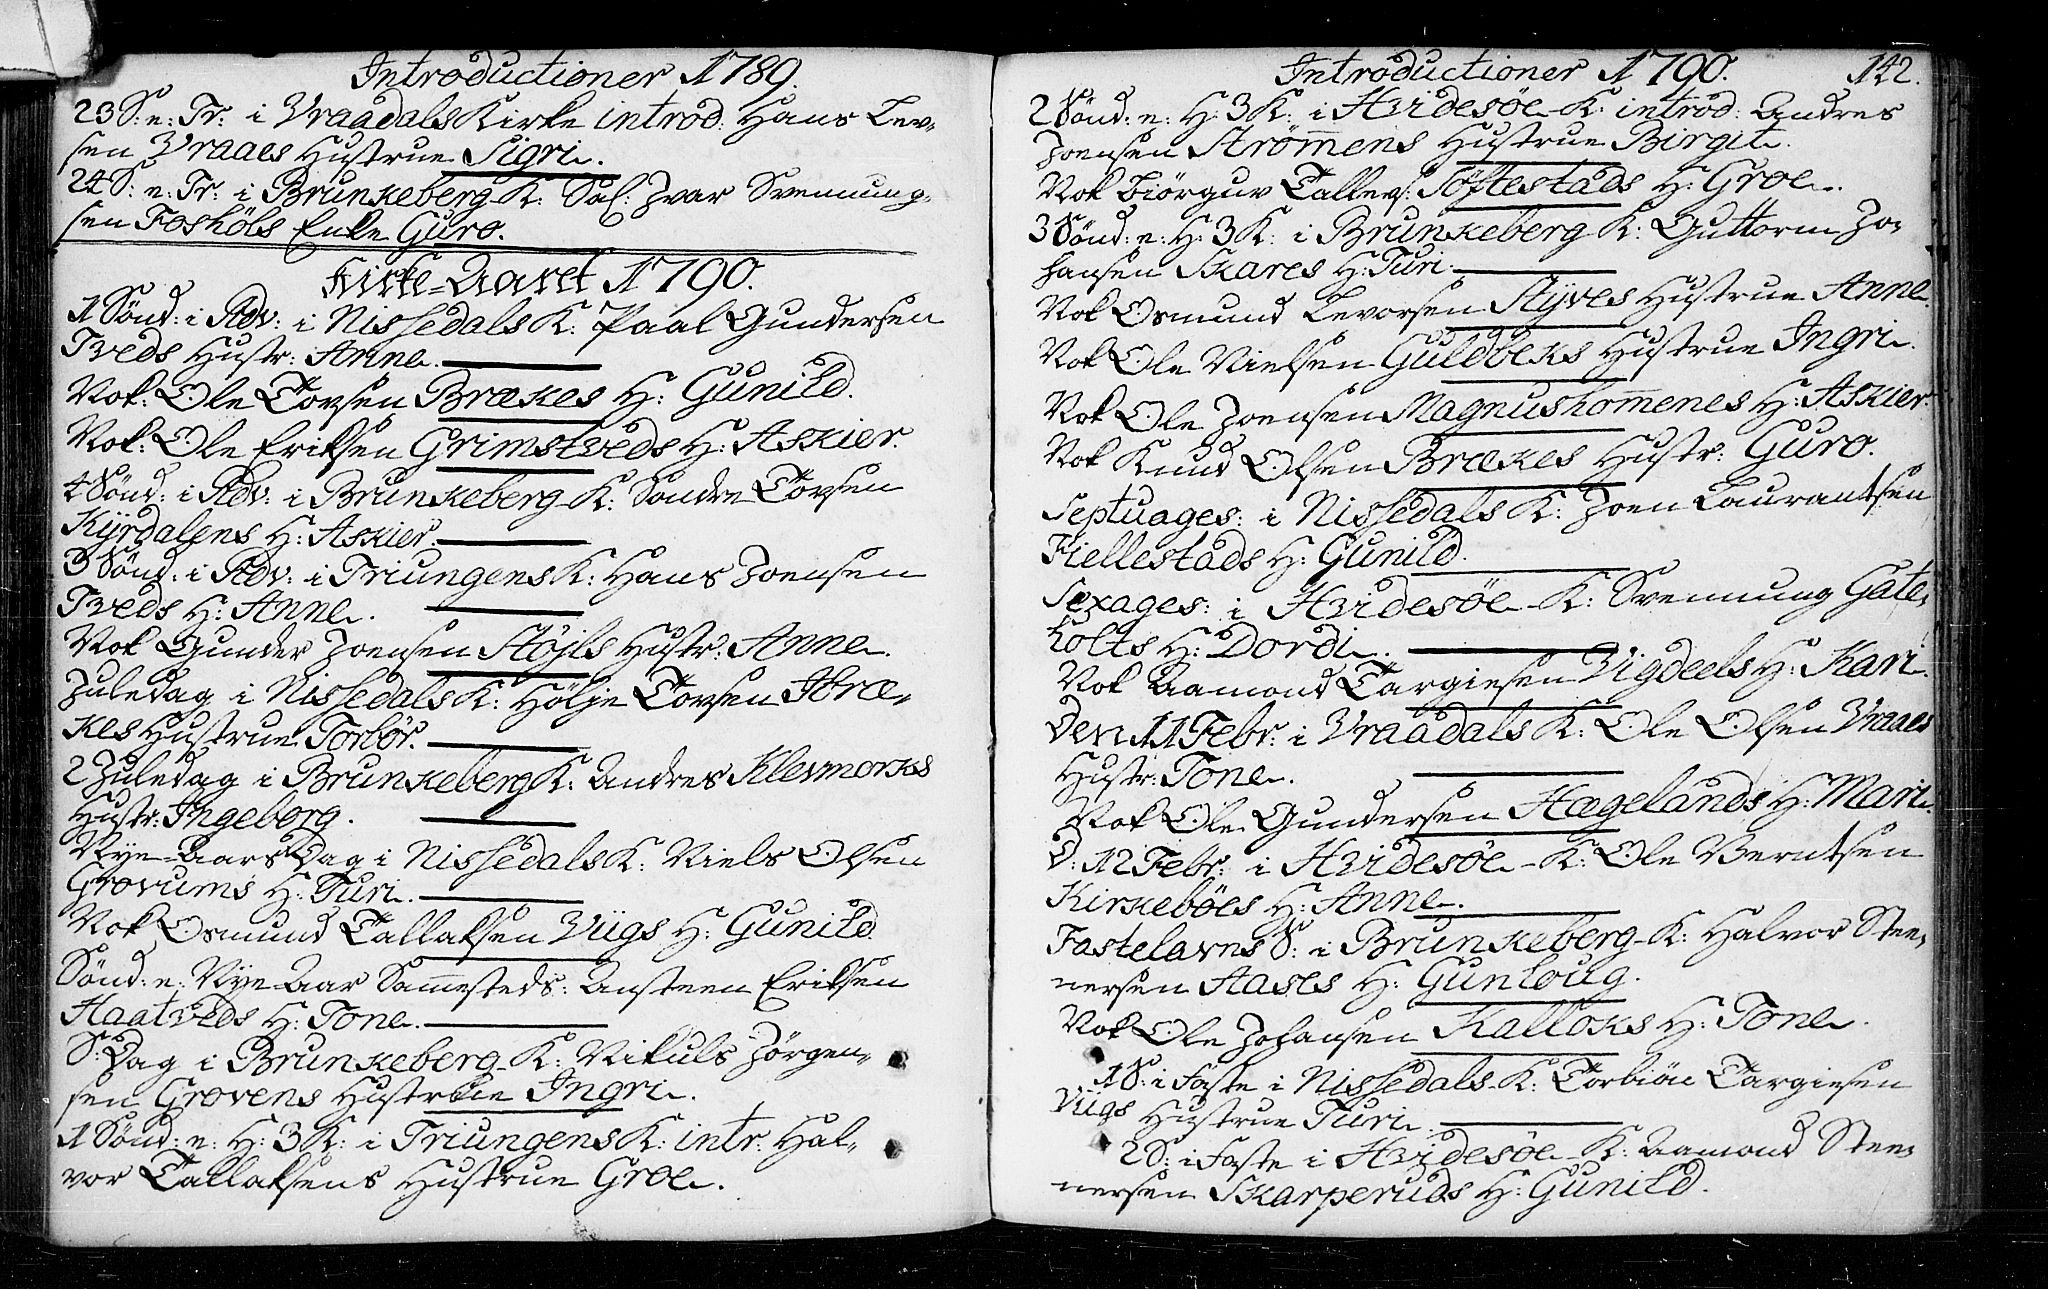 Introductioner 1789.
23 S: e: Tr: i Vraadals Kirke introd: Hans Lev-
sen Vraaes Hustrue Sigri.
24 S: e: Tr: i Brunkeberg K: Sal: Ivar Svennung-
sen Foshöls Enke Guro.
Kirke-Aaret 1790.
1 Sönd: i Adv: i Nissedals K: Paal Gundersen
Tveds Hustr: Anne.
Nok: Ole Tovsen Brækes H: Gunild.
Nok: Ole Eriksen Grimstveds H: Askier.
2 Sönd: i Adv: i Brunkeberg K: Sondre Tovsen
Kyrdalens H: Askier.
3 Sönd: i Adv: i Triungens K: Hans Joensen
Tveds H: Anne.
Nok Gunder Joensen Støjls Hustr: Anne.
Juledag i Nissedals K: Hölje Tovsen Ibræ-
kes Hustrue Torbör.
2 Juledag i Brunkeberg K: Andres Klevmorks
Hustr: Ingeborg.
Nye-Aars Dag i Nissedals K: Niels Olsen
Grovums H: Turi.
Nok Osmund Tallaksen Viigs H: Gunild
Sönd: e: Nye-Aar Sam̄esteds: Ansteen Eriksen
Haatveds H: Tone.
S: Dag i Brunkeberg K: Nikuls Jörgen-
sen Grovens Hustrue Ingri.
1 Sönd: e: H: 3 K: i Triungens K: intr: Hal-
vor Tallaksens Hustrue Groe.
Introductioner 1790.
142.
2 Sönd: e: H: 3 K: i Hvidesøe K: introd: Andres
Joensen Strøm̄ens Hustrue Birgit.
Nok Biörguv Tallevs: Töftestads H: Groe.
3 Sönd: e: H: 3 K: i Brunkeberg K: Guttorm Jo-
hansen Skares H: Turi.
Nok Osmund Levorsen Styves Hustrue Anne
Nok Ole Nielsen Guldbeks Hustrue Ingri.
Nok Ole Joensen Magnushom̄enes H: Askier.
Nok Knud Olsen Brækes Hustr: Guro.
Septuages: i Nissedals K: Joen Laurantsen
Fiellestads H: Gunild.
Sexages: i Hvidesøe K: Svennung Gate-
holts H: Dordi.
Nok Aamond Targiesen Vigdeels H: Kari.
Den 11 Febr: i Vraadals K: Ole Olsen Vraaes
Hustr: Tone.
Nok Ole Gundersen Hægelands H: Mari.
D: 12 Febr: i Hvidesøe K: Ole Berntsen
Kirkebøes H: Anne.
Fastelavns S: i Brunkeberg K: Halvor Stee-
nersen Aases H: Gunloug.
Nok Ole Johansen Kalloks H: Tone.
1 S: i Faste i Nissedals K: Torbiön Targiesen
Viigs Hustrue Turi.
2 S: i Faste i Hvidesøe K: Aamond Stee-
nersen Skarperuds H: Gunild.